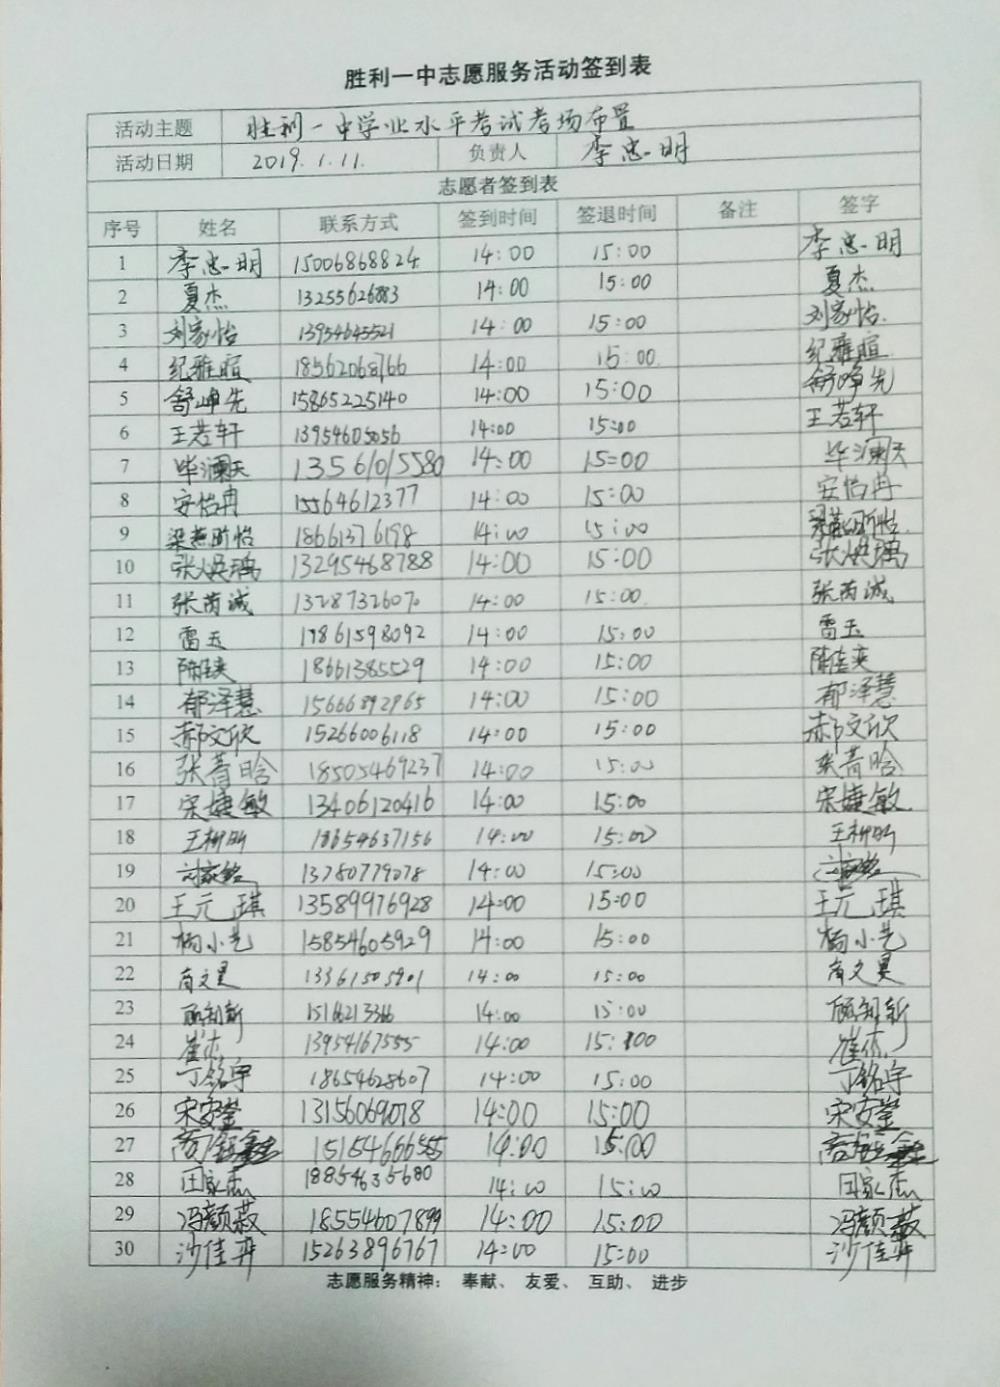 胜利一中志愿服务活动签到表
活动主题 胜利一中学业水平考试考场布置
活动日期 2019.1.11. 负责人 李忠明
志愿者签到表
序号 姓名 联系方式 签到时间 签退时间 备注 签字
1 李忠明 15006868824 14:00 15:00 李忠明
2 夏杰 13255626883 14:00 15:00 夏杰
3 刘家怡 13954645521 14:00 15:00 刘家怡
4 纪雅暄 18562068766 14:00 15:00 纪雅暄
5 舒峥先 15865225140 14:00 15:00 舒峥先
6 王若轩 13954605056 14:00 15:00 王若轩
7 毕澜天 13561015580 14:00 15:00 毕澜天
8 安怡冉 15564612377 14:00 15:00 安怡冉
9 18661376198 14:00 15:00
10 13295468788 14:00 15:00
11 张芮诚 1328732607 14:00 15:00 张芮诚
12 雷玉 19861598092 14:00 15:00 雷玉
13 18661385529 14:00 15:00
14 郁泽慧 15666892965 14:00 15:00 郁泽慧
15 郝文欣 15266006118 14:00 15:00 郝文欣
16 张菁晗 18505469237 14:00 15:00 张菁晗
17 宋婕敏 13406120416 14:00 15:00 宋婕敏
18 18654637156 14:00 15:00
19 13780779278 14:00 15:00
20 王元琪 13589976928 14:00 15:00 王元琪
21 杨小艺 15854605929 14:00 15:00 杨小艺
22 13361505901 14:00 15:00
23 1516213366 14:00 15:00
24 崔杰 13954167555 14:00 15:00 崔杰
25 丁铭宇 18654628607 14:00 15:00 丁铭宇
26 宋安莹 13156069018 14:00 15:00 宋安莹
27 15154666555 14:00 15:00
28 田家杰 18854635680 14:00 15:00 田家杰
29 冯颜薇 18554607899 14:00 15:00 冯颜薇
30 沙佳弄 15263896767 14:00 15:00 沙佳弄
志愿服务精神： 奉献、 友爱、 互助、 进步